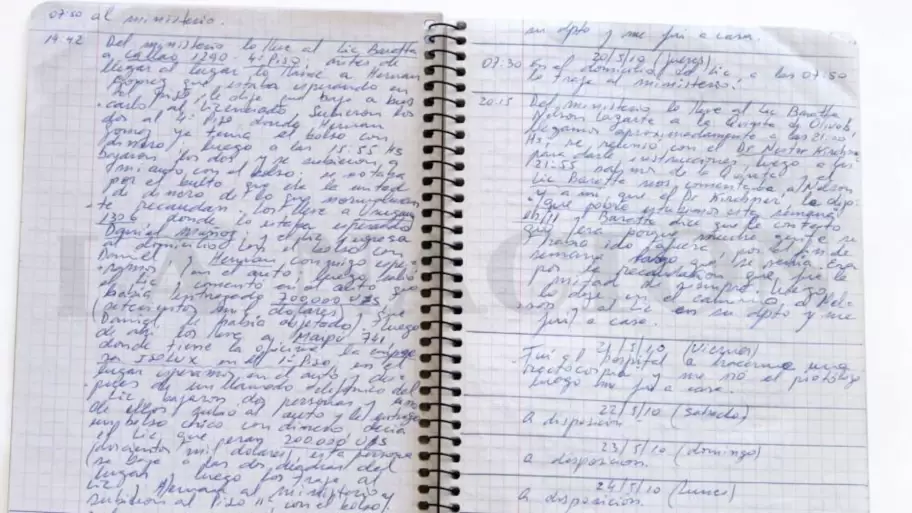 07:50 al ministerio.
14:42 Del ministerio lo lleve al Lic Baratta
a Callao 1290 4º Piso, antes de
llegar al lugar lo llame a Hernan
que estaba esperando en
le dije que baje a bus-
carlo al Licenciado. Subieron los
dos al 4º Piso donde Hernan
Gomez ya tenia el bolso con
dinero; luego a las 15:55 hs
bajaron los dos y se subieron a
mi auto con el bolso; se notaba
por el bulto que era la mitad
de dinero de lo que normalmen-
te recaudan. Los lleve a Uruguay
1306 donde lo estaba esperando
Daniel Muñoz; el Lic ingresa
al domicilio con el bolso con
Daniel y Hernan conmigo espe-
ramos en el auto; luego subió
el Lic y comento en el auto que
habia entregado 700.000 U$S
(setecientos mil dolares) y que
Daniel le habia objetado; luego
de ahi los lleve a Maipu 741,
donde tiene la oficina la empre-
sa Isolux en el 1º Piso, en el
lugar esperamos en el auto y des-
pues de un llamado telefonico del
Lic bajaron dos personas y uno
de ellos subio al auto y le entrego
un bolso chico con dinero decia
el Lic que eran 200.000 U$S
(doscientos mil dolares) esta persona
se bajo a las dos cuadras del
lugar luego los traje al
Lic y Hernan al ministerio y
subieron al Piso 11 con el bolso
su dpto y me fui a casa.
20/5/10 (jueves)
07:30 en el domicilio del Lic, a las 07:50
lo traje al ministerio.
20:15 Del ministerio lo lleve al Lic Baratta
y Nelson Lazarte a la Quinta de Olivos,
llegamos aproximadamente a las 21:20
Hs, se reunio con el Dr Nestor Kirchner
para darle instrucciones luego a las
21:55 salimos de la Quinta y el
Lic Baratta nos comentaba a Nelson
y a mi que el Dr Kirchner le dijo:
"que pobres estuvimos esta semana
eh!!" y Baratta dice que le contesto
que era porque mucha gente se
habia ido afuera por el fin de
semana largo que se venia
por la recaudacion que fue la
mitad de siempre. Luego
lo deje en el camino a Nel-
son y al Lic en su dpto y me
fui a casa.
21/5/10 (viernes)
Fui al hospital a hacerme una
rectocopia y me vio el proctologo
luego me fui a casa.
22/5/10 (sabado)
a disposicion
23/5/10 (domingo)
a disposicion.
24/5/10 (lunes)
a disposición.
LA NACION